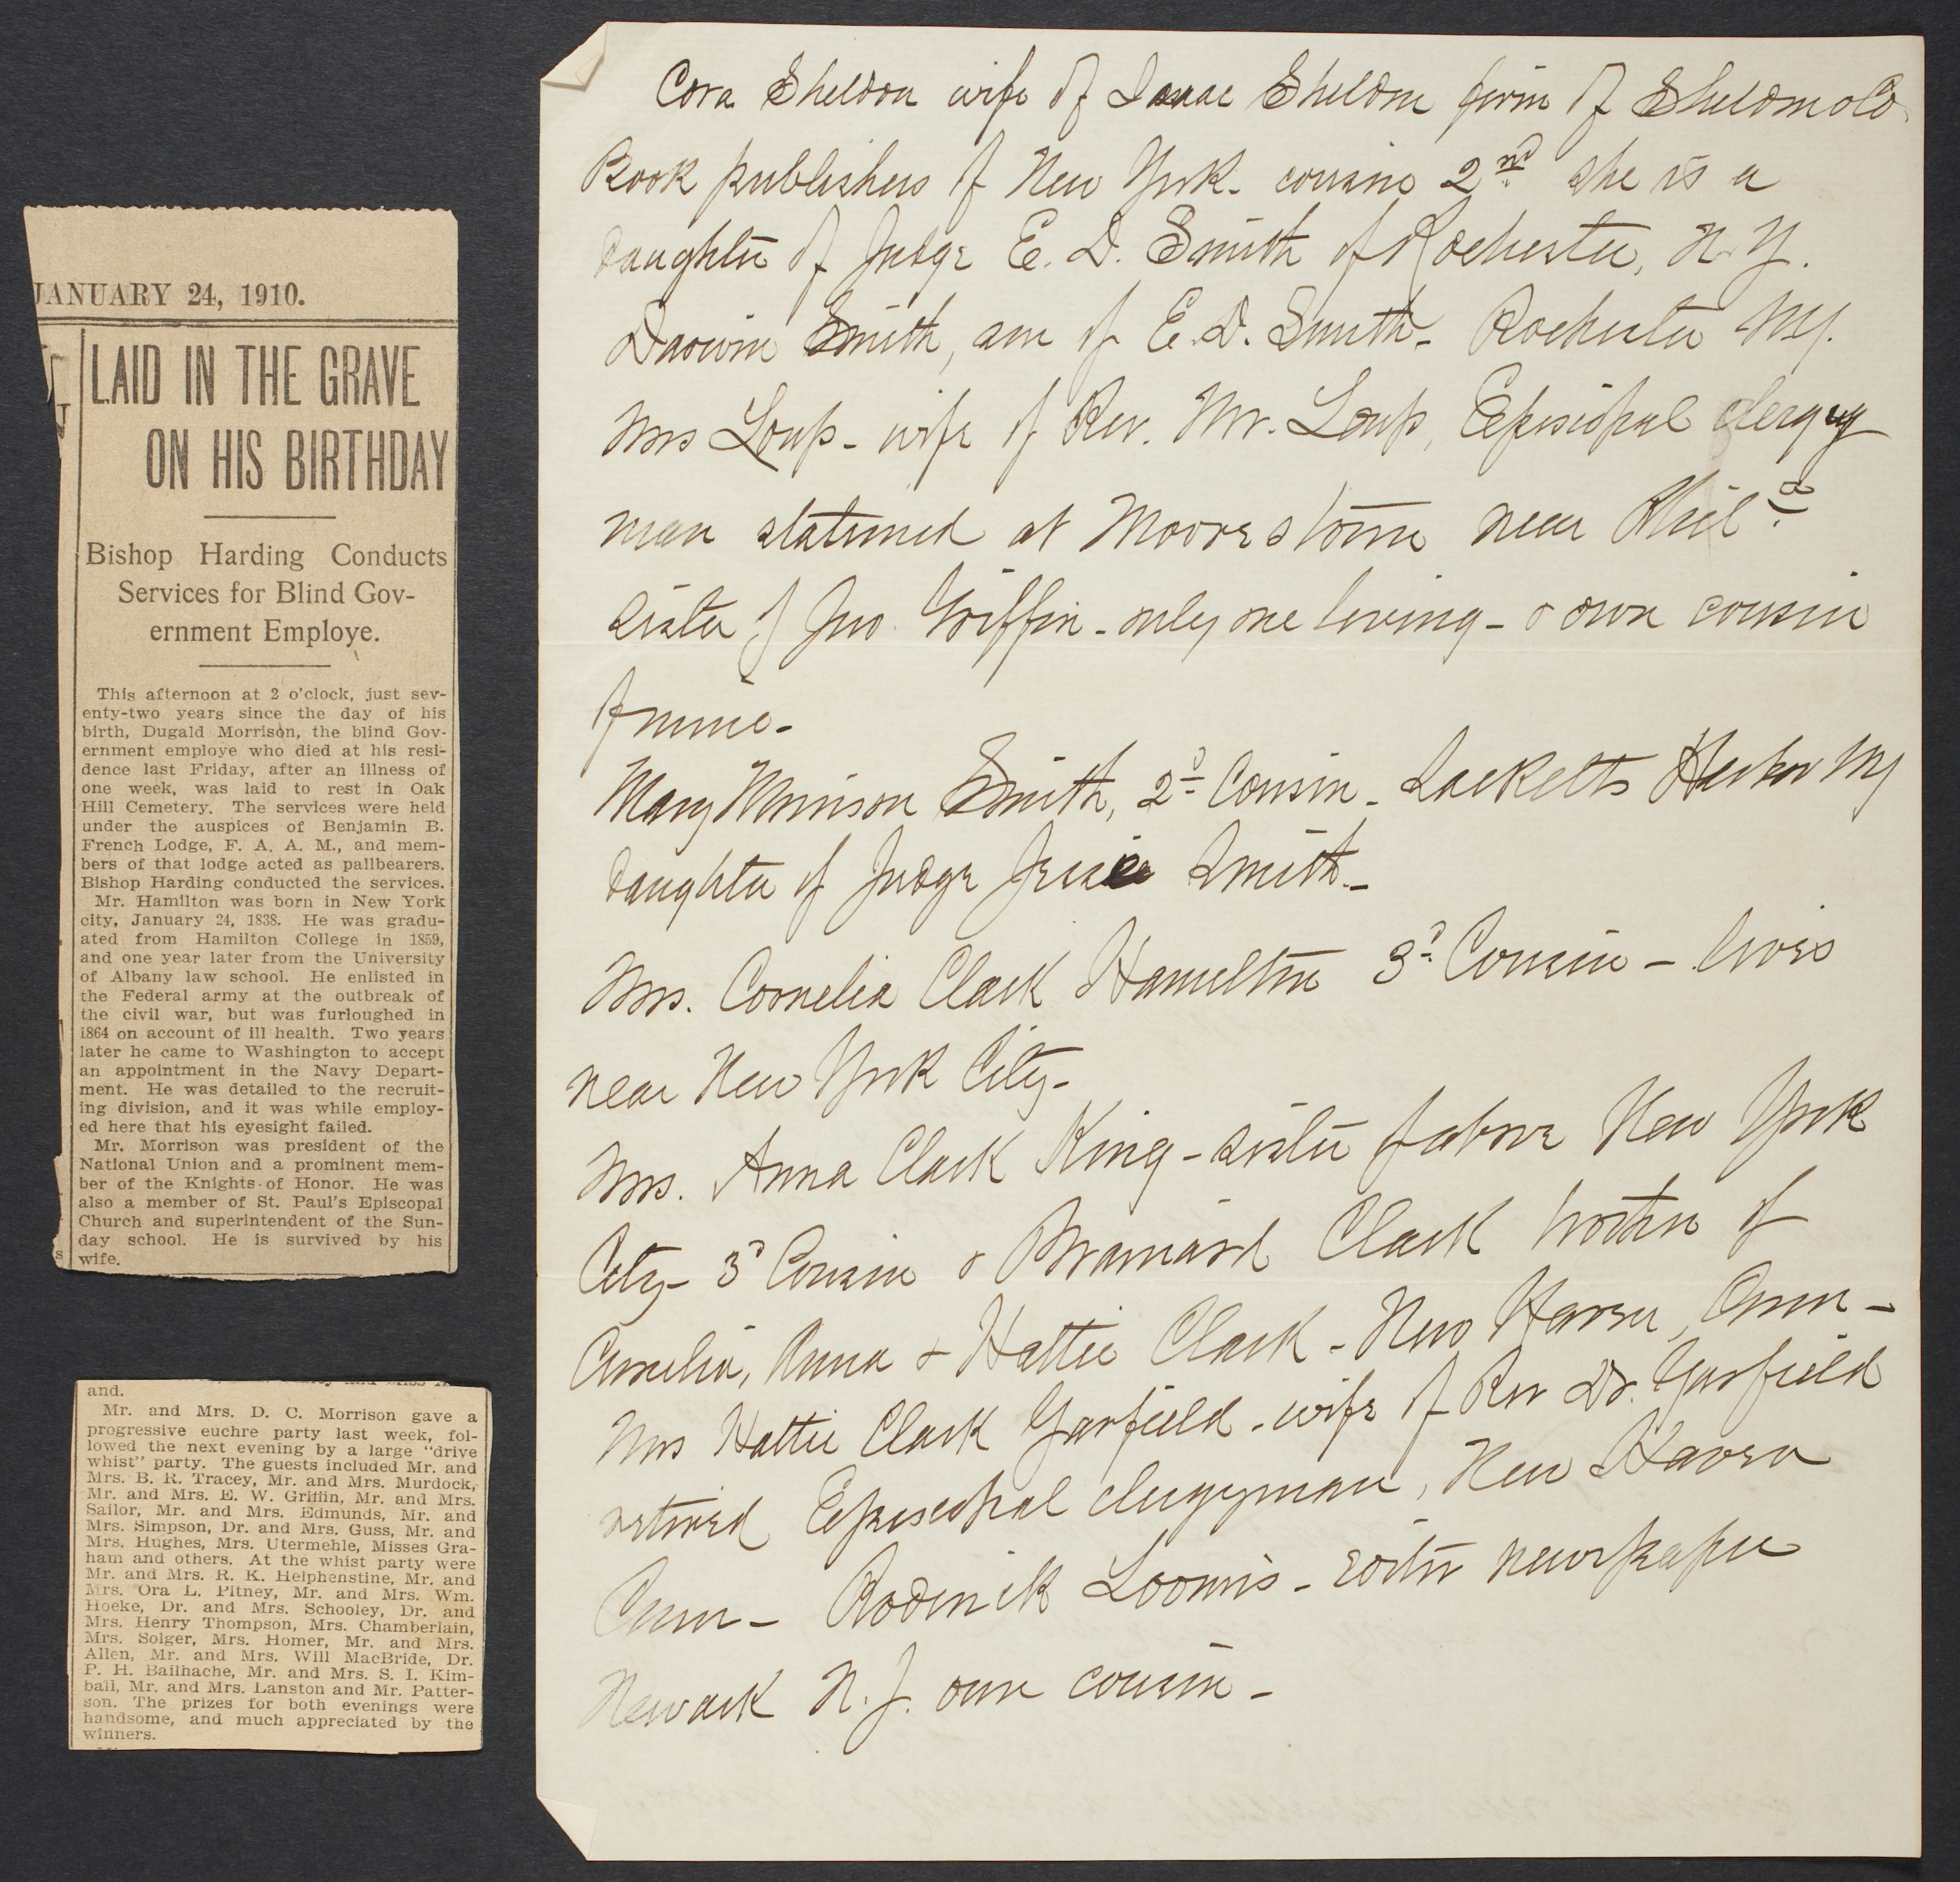 JANUARY 24, 1910.
LAID IN THE GRAVE
ON HIS BIRTHDAY
Bishop Harding Conducts
Services for Blind Gov-
ernment Employe.
This afternoon at 2 o'clock, just sev-
enty-two years since the day of his
birth, Dugald Morrison, the blind Gov-
ernment employe who died at his resi-
dence last Friday, after an illness of
one week, was laid to rest in Oak
Hill Cemetery. The services were held
under the auspices of Benjamin B.
French Lodge, F. A. A. M., and mem-
bers of that lodge acted as pallbearers.
Bishop Harding conducted the services.
Mr. Hamilton was born in New York
city, January 24, 1838. He was gradu-
ated from Hamilton College in 1859,
and one year later from the University
of Albany law school. He enlisted in
the Federal army at the outbreak of
the civil war, but was furloughed in
1864 on account of ill health. Two years
later he came to Washington to accept
an appointment in the Navy Depart-
ment. He was detailed to the recruit-
ing division, and it was while employ-
ed here that his eyesight failed.
Mr. Morrison was president of the
National Union and a prominent mem-
ber of the Knights of Honor. He was
also a member of St. Paul's Episcopal
Church and superintendent of the Sun-
day school. He is survived by his
wife.
and.
Mr. and Mrs. D. C. Morrison gave a
progressive euchre party last week, fol-
lowed the next evening by a large "drive
whist" party. The guests included Mr. and
Mrs. B. R. Tracey, Mr. and Mrs. Murdock,
Mr. and Mrs. E. W. Griffin, Mr. and Mrs.
Sailor, Mr. and Mrs. Edmunds, Mr. and
Mrs. Simpson, Dr. and Mrs. Guss, Mr. and
Mrs. Hughes, Mrs. Utermehle, Misses Gra-
ham and others. At the whist party were
Mr. and Mrs. R. K. Helphenstine, Mr. and
Mrs. Ora L. Pitney, Mr. and Mrs. Wm.
Hoeke, Dr. and Mrs. Schooley, Dr. and
Mrs. Henry Thompson, Mrs. Chamberlain,
Mrs. Solger, Mrs. Homer, Mr. and Mrs.
Allen, Mr. and Mrs. Will MacBride, Dr.
P. H. Bailhache, Mr. and Mrs. S. I. Kim-
ball, Mr. and Mrs. Lanston and Mr. Patter-
son. The prizes for both evenings were
handsome, and much appreciated by the
winners.
Cora Sheldon wife of Isaac Sheldon firm of Sheldon & Co
Book publishers of New York - cousin 2nd she is a
daughter of Judge E. D. Smith of Rochester, N.Y.
Darwin Smith, son of E. D. Smith - Rochester NY.
Mrs Loup - wife of Rev. Mr. Loup, Episcopal clergy
man stationed at Moorestown near Phila
sister of Jno. Griffin - only one living - & own cousin
of mine -
Mary Morrison Smith, 2d Cousin - Sacketts Harbor NY
daughter of Judge Jessie Smith -
Mrs. Cornelia Clark Hamilton 3d Cousin - lives
near New York City -
Mrs. Anna Clark King - sister of above New York
City - 3d Cousin & Brainard Clark brother of
Cornelia, Anna & Hattie Clark - New Haven, Conn -
Mrs Hattie Clark Garfield - wife of Rev Dr. Garfield
retired Episcopal clergyman, New Haven
Conn - Roderick Loomis - editor newspaper
Newark N.J. own cousin -